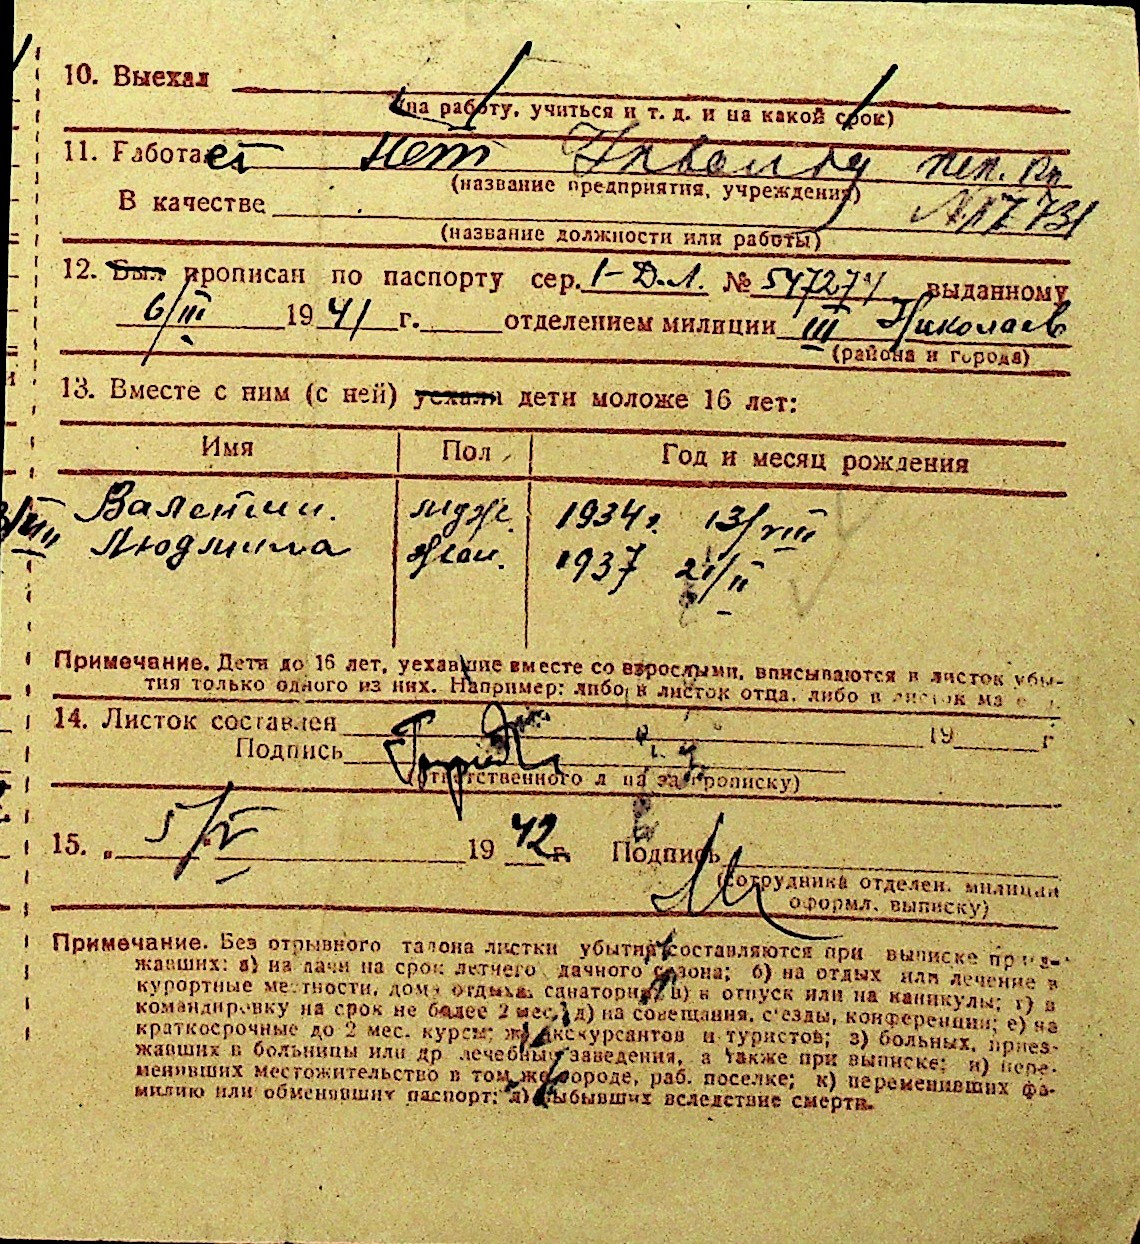 10. Выехал
(на работу, учиться и т. д. и на какой срок)
11. Работает нет Инвалид пен. кн
(название предприятия, учреждения)
В качестве № 17731
(название должности или работы)
12. Был прописан по паспорту сер. I-Д.Л. № 547277 выданному
6/III 1941 г. отделением милиции III Николаев
(района и города)
13. Вместе с ним (с ней) уехали дети моложе 16 лет:
Имя Пол Год и месяц рождения
Валентин. муж. 1934г. 13/VIII
Людмила жен. 1937 21/II
Примечание. Дети до 16 лет, уехавшие вместе со взрослыми, вписываются в листок убы-
тия только одного из них. Например: либо в листок отца, либо в листок ма
14. Листок составлен 19 г
Подпись
(ответственного л на за прописку)
15. „5/V 1942 г. Подпись
(сотрудника отделен. милиции
оформл. выписку)
Примечание. Без отрывного талона листки убытия составляются при выписке приез-
жавших: а) на дачи на срок летнего дачного сезона; б) на отдых или лечение в
курортные местности, дома отдыха, санатории; в) в отпуск или на каникулы; г) в
командировку на срок не более 2 мес.; д) на совещания, съезды, конференции; е) на
краткосрочные до 2 мес. курсы; ж) экскурсантов и туристов; з) больных, приез-
жавших в больницы или др лечебные заведения, а также при выписке: и) пере-
менивших местожительство в том же городе, раб. поселке; к) переменивших фа-
милию или обменявших паспорт; л) выбывших вследствие смерти.